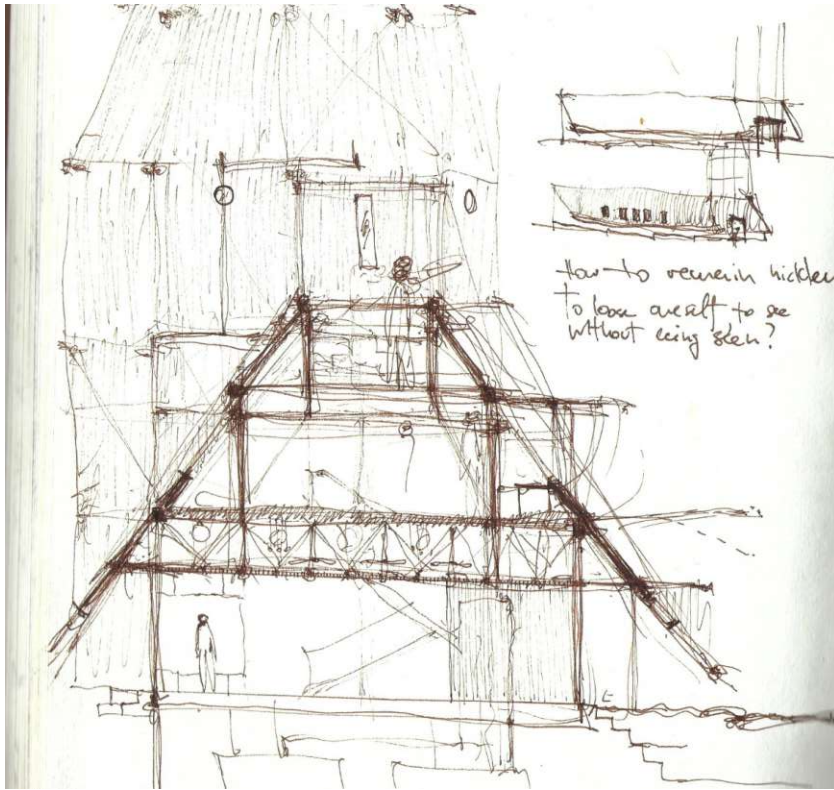 How to remain hidden
to loose oneself to see
without being seen?